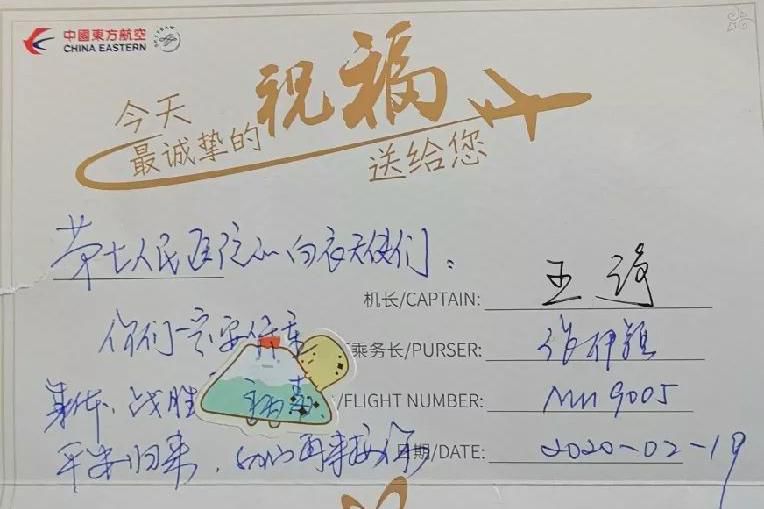 中國東方航空
CHINA EASTERN
今天
最诚挚的
祝福
送给您
第七人民医院的白衣天使们：
机长/CAPTAIN: 王
你们一定要保重
乘务长/PURSER:
身体、战胜 病毒
/FLIGHT NUMBER: MU9005
平安归来，我们再来接你
日期/DATE: 2020-02-19